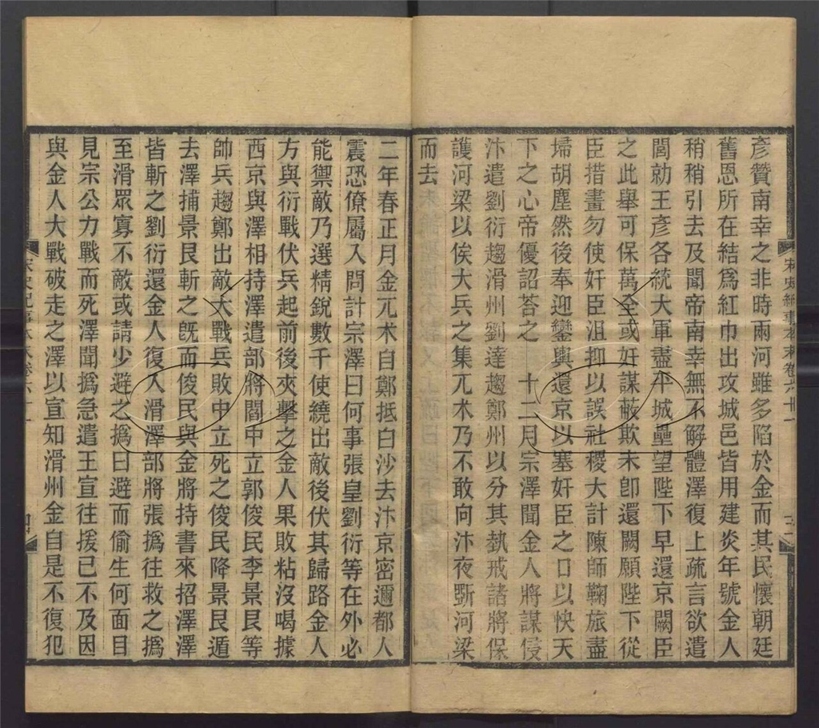 彥贊南幸之非時兩河雖多陷於金而其民懷朝廷
舊恩所在結爲紅巾出攻城邑皆用建炎年號金人
稍稍引去及聞帝南幸無不解體澤復上疏言欲遣
閭勍王彥各統大軍盡平城壘望陛下早還京闕臣
之此舉可保萬全或奸謀蔽欺未卽還闕願陛下從
臣措畫勿使奸臣沮抑以誤社稷大計陳師鞠旅盡
埽胡塵然後奉迎鑾輿還京以塞奸臣之口以快天
下之心帝優詔荅之 十二月宗澤聞金人將謀侵
汴遣劉衍趨滑州劉達趨鄭州以分其埶戒諸將保
護河梁以俟大兵之集兀朮乃不敢向汴夜斷河梁
而去
二年春正月金兀朮自鄭抵白沙去汴京密邇都人
震恐僚屬入問計宗澤曰何事張皇劉衍等在外必
能禦敵乃選精銳數千使繞出敵後伏其歸路金人
方與衍戰伏兵起前後夾擊之金人果敗粘沒喝據
西京與澤相持澤遣部將閻中立郭俊民李景良等
帥兵趨鄭出敵大戰兵敗中立死之俊民降景良遁
去澤捕景良斬之旣而俊民與金將持書來招澤澤
皆斬之劉衍還金人復入滑澤部將張撝往救之撝
至滑眾寡不敵或請少避之撝曰避而偷生何面目
見宗公力戰而死澤聞撝急遣王宣往援已不及因
與金人大戰破走之澤以宣知滑州金自是不復犯